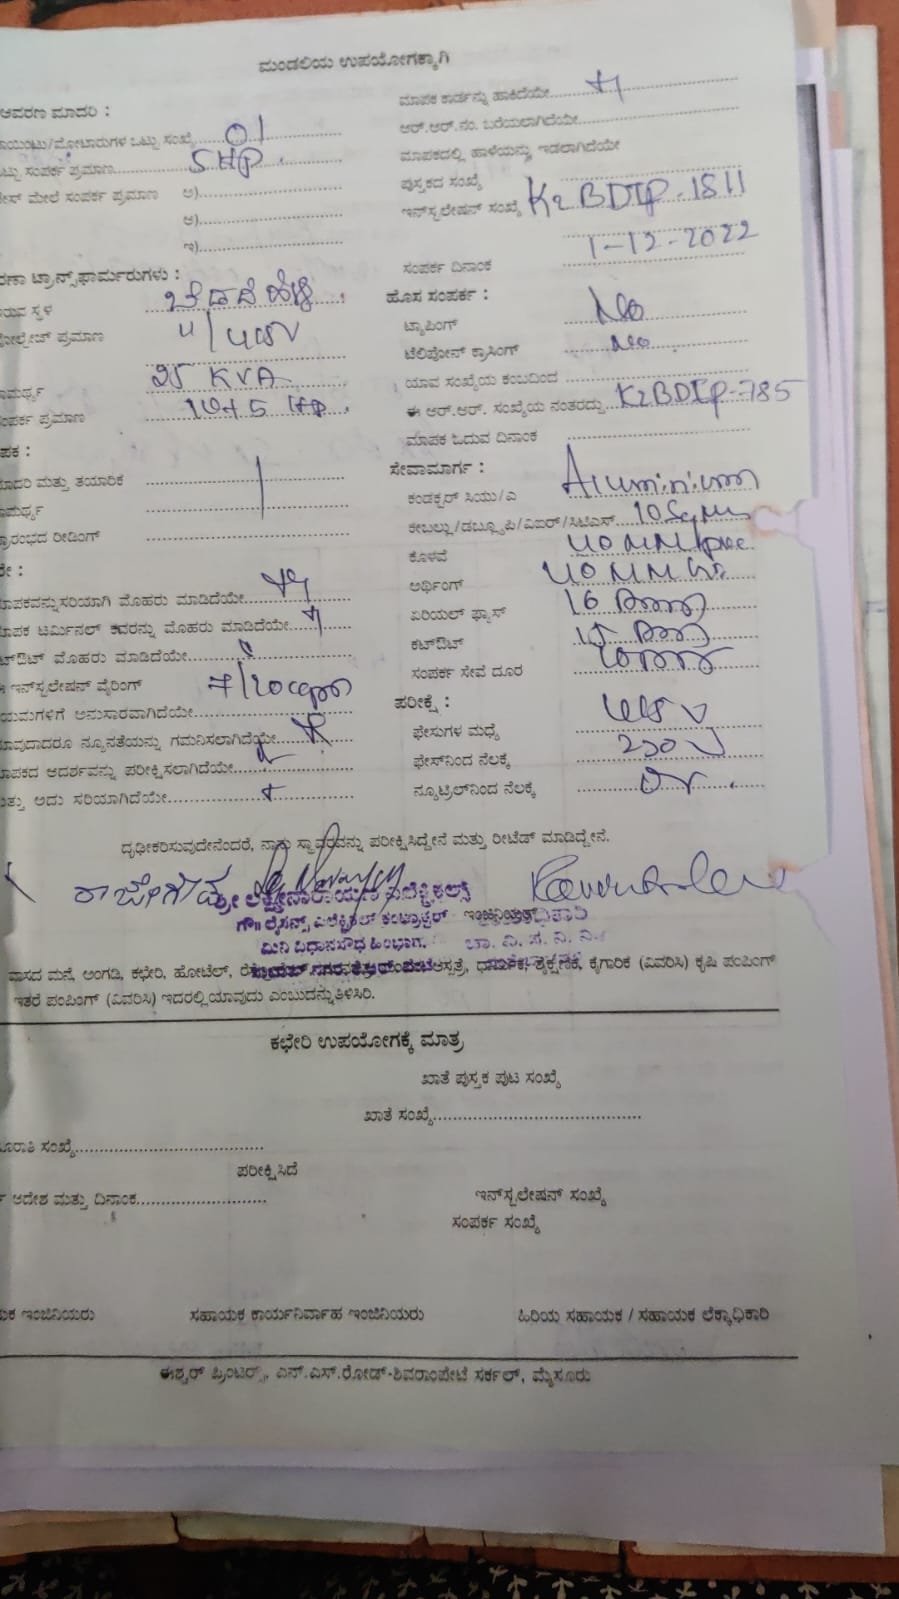 ಮಂಡಲಿಯ ಉಪಯೋಗಕ್ಕಾಗಿ
ಆವರಣ ಮಾದರಿ :
ಾಯಿಂಟು/ಮೋಟಾರುಗಳ ಒಟ್ಟು ಸಂಖ್ಯೆ 01
ಟ್ಟು ಸಂಪರ್ಕ ಪ್ರಮಾಣ 5HP
ೇಸ್ ಮೇಲೆ ಸಂಪರ್ಕ ಪ್ರಮಾಣ ಅ)
ಆ)
ಇ)
ರಣಾ ಟ್ರಾನ್ಸ್‌ಫಾರ್ಮರುಗಳು :
ಿರುವ ಸ್ಥಳ
ೋಲ್ಟೇಜ್ ಪ್ರಮಾಣ 11/415V
ಾಮರ್ಥ್ಯ 25 KVA
ಸಂಪರ್ಕ ಪ್ರಮಾಣ
ಪಕ :
ಮಾದರಿ ಮತ್ತು ತಯಾರಿಕೆ
ಾಮರ್ಥ್ಯ
ಪ್ರಾರಂಭದ ರೀಡಿಂಗ್
ರೇ :
ಮಾಪಕವನ್ನು ಸರಿಯಾಗಿ ಮೊಹರು ಮಾಡಿದೆಯೇ
ಮಾಪಕ ಟರ್ಮಿನಲ್ ಕವರನ್ನು ಮೊಹರು ಮಾಡಿದೆಯೇ
ಟ್‌ಔಟ್ ಮೊಹರು ಮಾಡಿದೆಯೇ
ಈ ಇನ್‌ಸ್ಟಲೇಷನ್ ವೈರಿಂಗ್
ಯಮಗಳಿಗೆ ಅನುಸಾರವಾಗಿದೆಯೇ
ಾವುದಾದರೂ ನ್ಯೂನತೆಯನ್ನು ಗಮನಿಸಲಾಗಿದೆಯೇ
ಮಾಪಕದ ಆದರ್ಶವನ್ನು ಪರೀಕ್ಷಿಸಲಾಗಿದೆಯೇ
ಮತ್ತು ಅದು ಸರಿಯಾಗಿದೆಯೇ
ಮಾಪಕ ಕಾರ್ಡನ್ನು ಹಾಕಿದೆಯೇ
ಆರ್.ಆರ್.ನಂ. ಬರೆಯಲಾಗಿದೆಯೇ
ಮಾಪಕದಲ್ಲಿ ಹಾಳೆಯನ್ನು ಇಡಲಾಗಿದೆಯೇ
ಪುಸ್ತಕದ ಸಂಖ್ಯೆ
ಇನ್‌ಸ್ಟಲೇಷನ್ ಸಂಖ್ಯೆ K2BDIP-1811
ಸಂಪರ್ಕ ದಿನಾಂಕ 1-12-2022
ಹೊಸ ಸಂಪರ್ಕ :
ಟ್ಯಾಪಿಂಗ್ No
ಟೆಲಿಫೋನ್ ಕ್ರಾಸಿಂಗ್ No
ಯಾವ ಸಂಖ್ಯೆಯ ಕಂಬದಿಂದ
ಈ ಆರ್.ಆರ್. ಸಂಖ್ಯೆಯ ನಂತರದ್ದು K2BDIP-785
ಮಾಪಕ ಓದುವ ದಿನಾಂಕ
ಸೇವಾಮಾರ್ಗ :
ಕಂಡಕ್ಟರ್ ಸಿಯು/ಎ Aluminium
ಕೇಬಲ್ಲು/ಡಬ್ಲ್ಯೂಪಿ/ವಿಐಆರ್/ಸಿಟಿಎಸ್ 10 Sqmm
ಕೊಳವೆ 40 MM pvc
ಅರ್ಥಿಂಗ್ 40 MM
ಏರಿಯಲ್ ಫ್ಯೂಸ್ 16
ಕಟ್‌ಔಟ್ 15
ಸಂಪರ್ಕ ಸೇವೆ ದೂರ
ಪರೀಕ್ಷೆ :
ಫೇಸುಗಳ ಮಧ್ಯೆ 415 V
ಫೇಸ್‌ನಿಂದ ನೆಲಕ್ಕೆ 230 V
ನ್ಯೂಟ್ರಲ್‌ನಿಂದ ನೆಲಕ್ಕೆ 0V
ದೃಢೀಕರಿಸುವುದೇನೆಂದರೆ, ನಾನು ಸ್ಥಾವರವನ್ನು ಪರೀಕ್ಷಿಸಿದ್ದೇನೆ ಮತ್ತು ರೀಟೆಡ್ ಮಾಡಿದ್ದೇನೆ.
ರಾಜೇಗೌಡ
ಶ್ರೀ ಲಕ್ಷ್ಮೀನಾರಾಯಣ ಎಲೆಕ್ಟ್ರಿಕಲ್ಸ್
ಗೌ॥ ಲೈಸೆನ್ಸ್ಡ್ ಎಲೆಕ್ಟ್ರಿಕಲ್ ಕಂಟ್ರಾಕ್ಟರ್
ಮಿನಿ ವಿಧಾನಸೌಧ ಹಿಂಭಾಗ,
ಚಾ. ವಿ. ಸ. ನಿ. ನಿ.
ವಾಸದ ಮನೆ, ಅಂಗಡಿ, ಕಛೇರಿ, ಹೋಟೆಲ್, ಆಸ್ಪತ್ರೆ, ಧಾರ್ಮಿಕ, ಶೈಕ್ಷಣಿಕ, ಕೈಗಾರಿಕೆ (ವಿವರಿಸಿ) ಕೃಷಿ ಪಂಪಿಂಗ್
ಇತರೆ ಪಂಪಿಂಗ್ (ವಿವರಿಸಿ) ಇದರಲ್ಲಿ ಯಾವುದು ಎಂಬುದನ್ನು ತಿಳಿಸಿರಿ.
ಕಛೇರಿ ಉಪಯೋಗಕ್ಕೆ ಮಾತ್ರ
ಖಾತೆ ಪುಸ್ತಕ ಪುಟ ಸಂಖ್ಯೆ
ಖಾತೆ ಸಂಖ್ಯೆ
ಸಂಖ್ಯೆ
ಪರೀಕ್ಷಿಸಿದೆ
ಆದೇಶ ಮತ್ತು ದಿನಾಂಕ
ಇನ್‌ಸ್ಟಲೇಷನ್ ಸಂಖ್ಯೆ
ಸಂಪರ್ಕ ಸಂಖ್ಯೆ
ಯಕ ಇಂಜಿನಿಯರು ಸಹಾಯಕ ಕಾರ್ಯನಿರ್ವಾಹ ಇಂಜಿನಿಯರು ಹಿರಿಯ ಸಹಾಯಕ / ಸಹಾಯಕ ಲೆಕ್ಕಾಧಿಕಾರಿ
ಈಶ್ವರ್ ಪ್ರಿಂಟರ‍್ಸ್, ಎನ್.ಎಸ್.ರೋಡ್-ಶಿವರಾಂಪೇಟೆ ಸರ್ಕಲ್, ಮೈಸೂರು